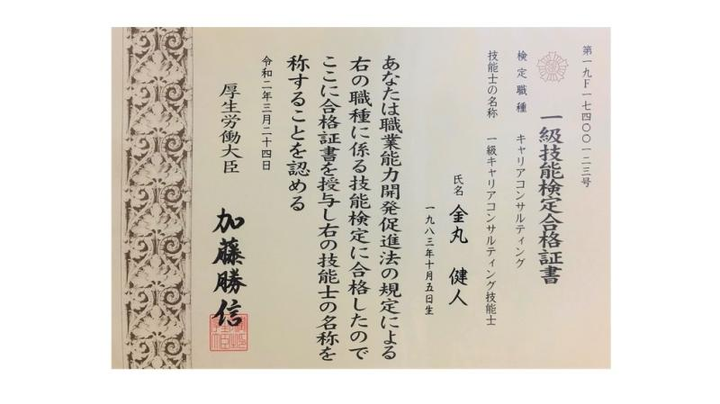 第一九F一七四〇〇一二三号
一級技能検定合格証書
検定職種　キャリアコンサルティング
技能士の名称　一級キャリアコンサルティング技能士
氏名　金丸　健人
一九八三年十月五日生
あなたは職業能力開発促進法の規定による
右の職種に係る技能検定に合格したので
ここに合格証書を授与し右の技能士の名称を
称することを認める
令和二年三月二十四日
厚生労働大臣　加藤勝信